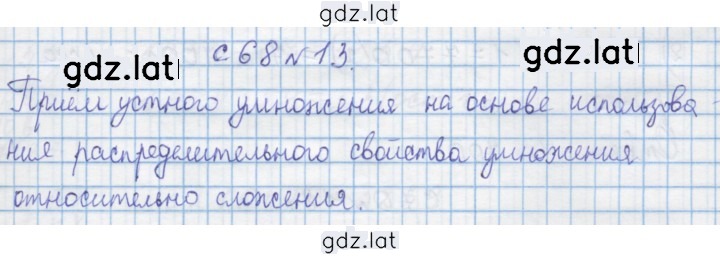 gdz.lat
с 68 № 13.
gdz.lat
gdz.lat
Приём устного умножения на основе использова-
ния распределительного свойства умножения
относительно сложения.
gdz.lat